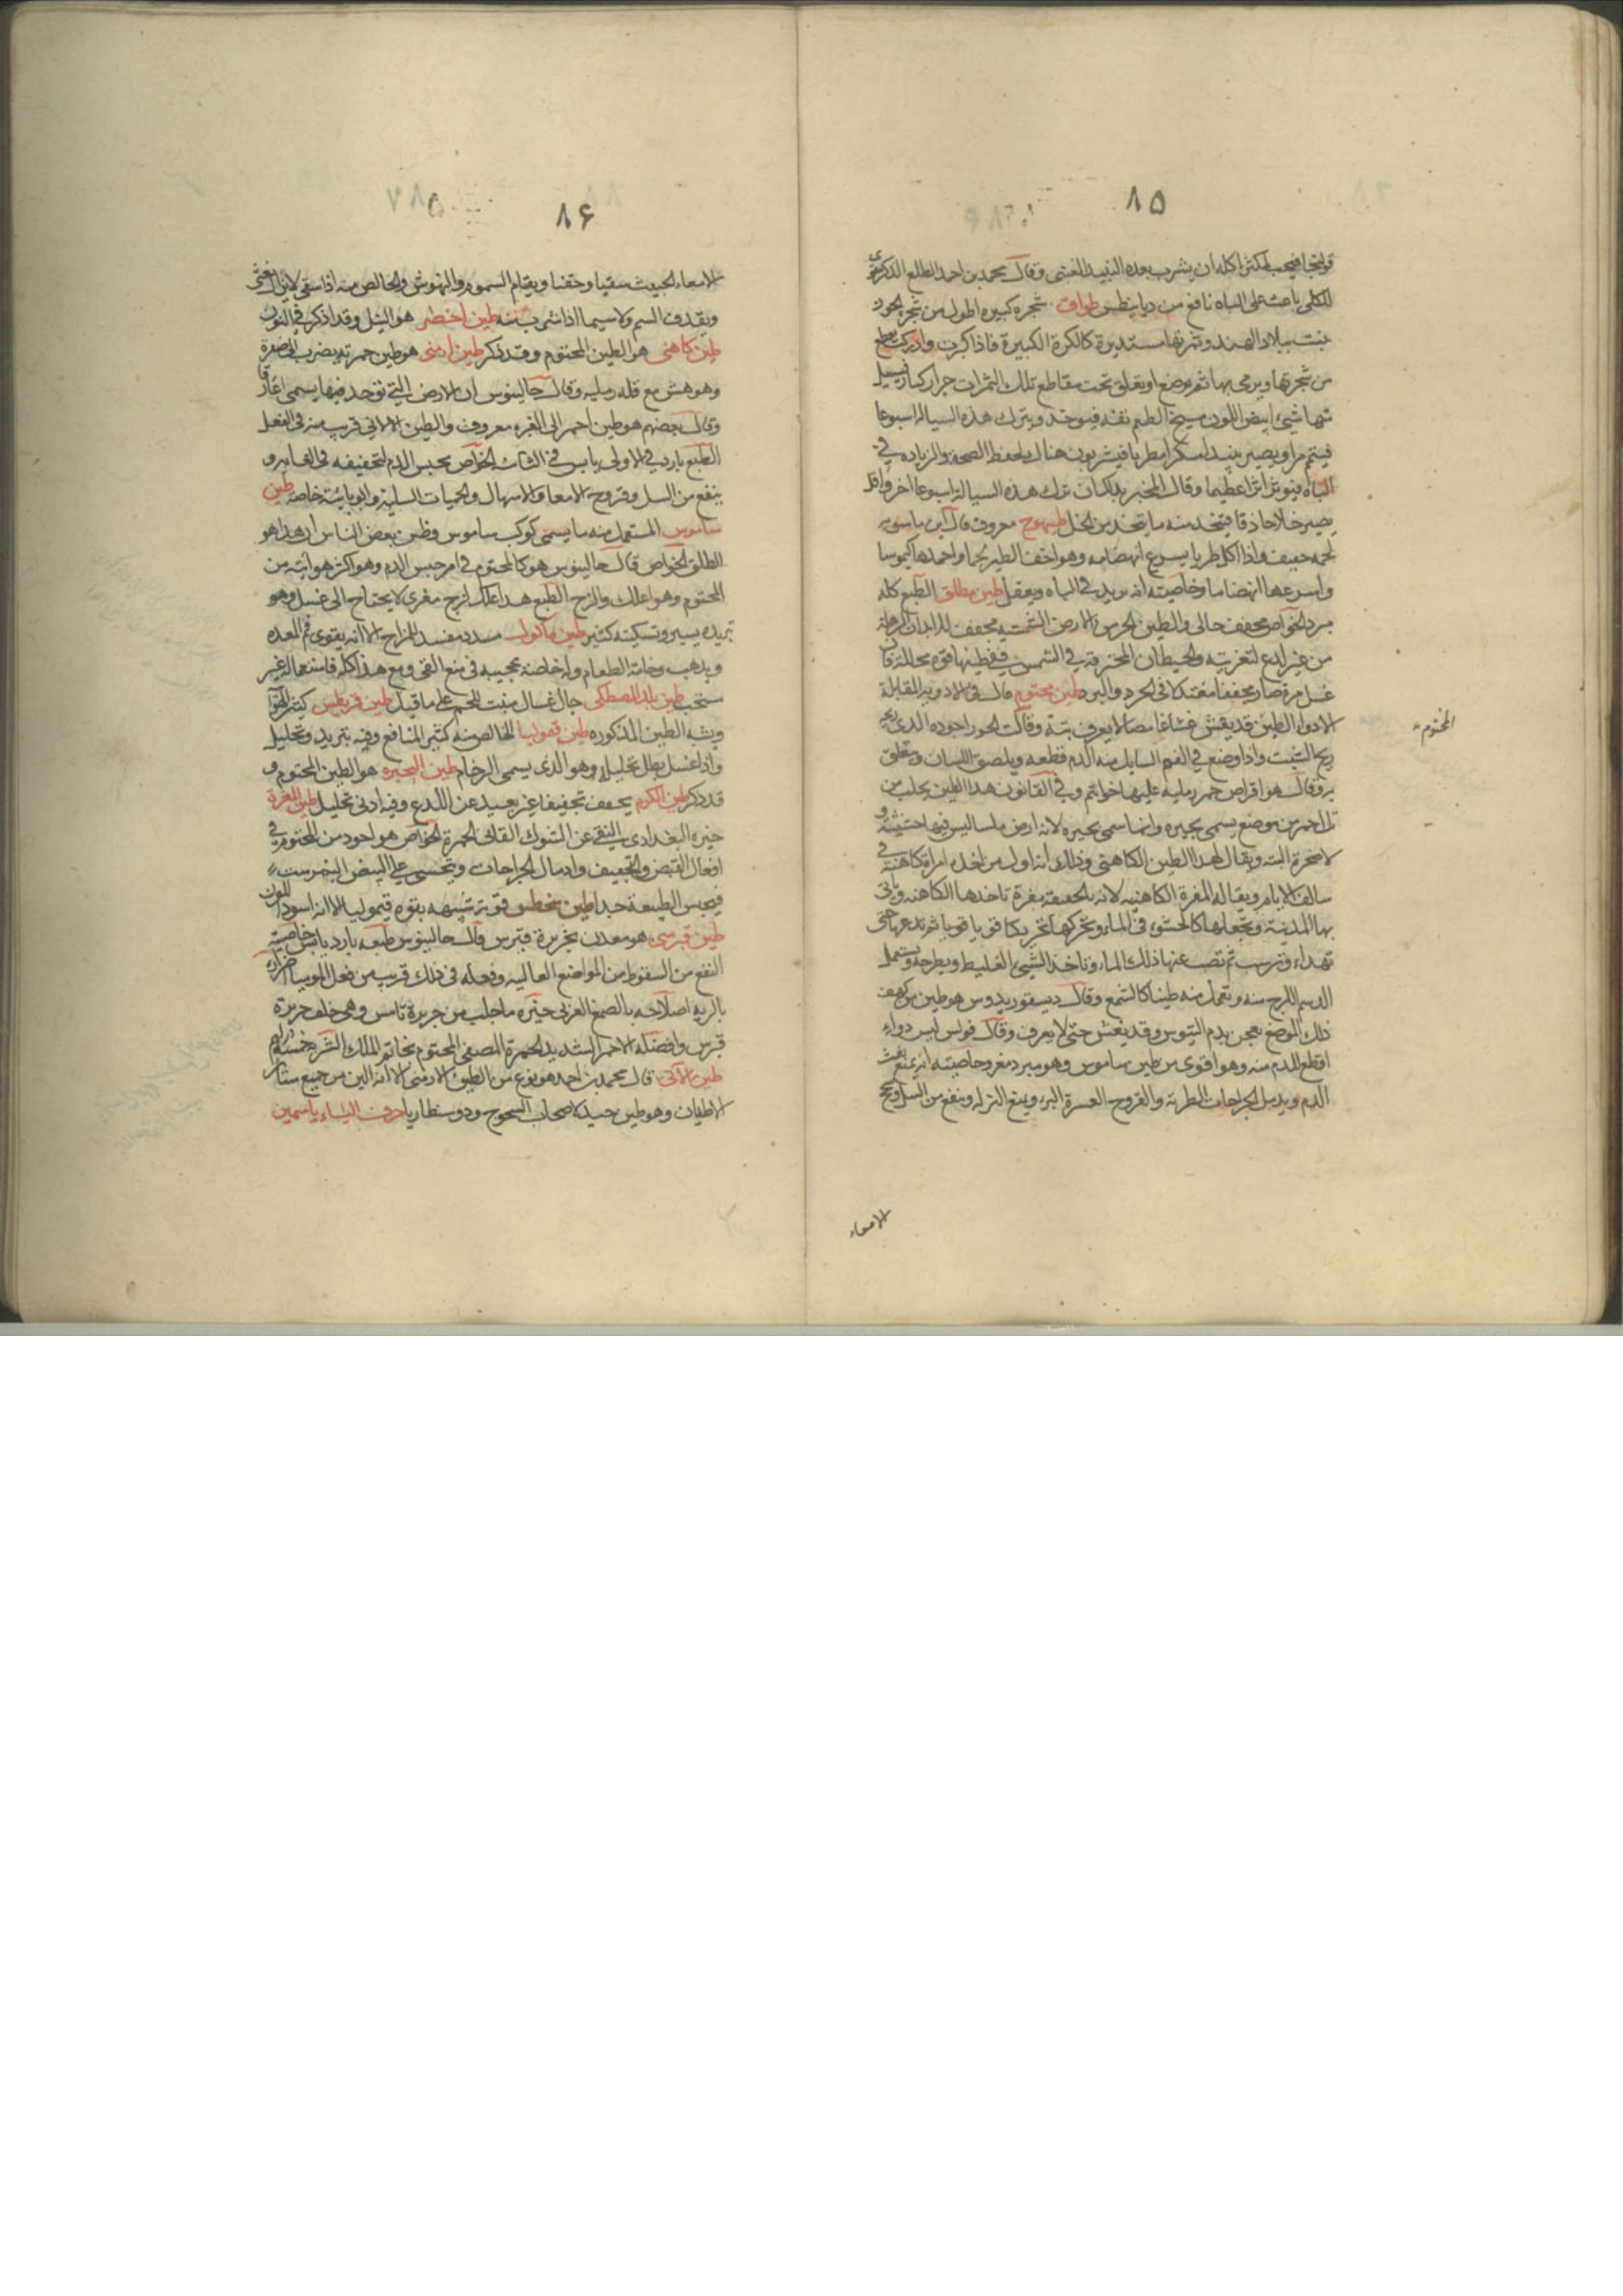 ٨٥
قولنجا فيجب لمكثر اكله ان يشرب بعده النبيذ العتيق وقال محمد بن احمد الطلع الذكر يقوى
الكلى باعث على الباه نافع من ديابيطس طواق شجرة كبيرة اطول من شجر الجوز
ينبت ببلاد الهند وثمرتها مستديرة كالكرة الكبيرة فاذا كبرت وادركت يقطع
من شجرتها ويرمى بها ثم يوضع او يعلق تحت مقاطع تلك الثمرات جرار كبار فيسيل
منها شئ ابيض اللون مسيخ الطعم تفه فيوخذ ويترك هذه السيالة اسبوعا
فيتم مرا ويصير نبيذا مسكرا مطربا فيشربون هناك لحفظ الصحة والزيادة في
الباه فيوثر اثرا عظيما وقال المخبر بذلك ان ترك هذه السيالة اسبوعا اخر واقل
يصير خلا حاذقا فيتخذ منه ما يتخذ من الخل طيهوج معروف قال ابن ماسويه
لحمه خفيف واذا اكل طريا يسرع انهضامه وهو اخف الطير لحما واحمدها كيموسا
واسرعها انهضاما وخاصيته انه يزيد في الباه ويعقل طين مطلق الطبع كله
مبرد الخواص مجفف جالي والطين الحر من الارض الشمسية مجفف للابدان الرهلة
من غير لذع لتغريته والحيطان المحترقة في الشمس ففي طينها قوة محللة فان
غسل مرة صار مجففا معتدلا في الحر والبرد طين مختوم قال في الادوية المقابلة
الادواء الطين قد يغش غشاغامضا لا يعرف بتة وقالت الحور اجوده الذي ريحه
المختوم
ريح الشبت واذا وضع في الفم السايل منه الدم قطعه ويلصق اللسان ويتعلق
به وقال هو اقراص حمر رملية عليها خواتم وفي القانون هذا الطين يجلب من
تل احمر من موضع يسمى بحيرة وانما سمى بحيرة لانه ارض ملسا ليس فيها حشيشة و
لا صخرة البتة ويقال لهذا الطين الكاهني وذلك انه اول من اخذه امراة كاهنة في
سالف الايام ويقال له المغرة الكاهنية لانه بالحقيقة مغرة تاخذها الكاهنة وتاتى
بها المدينة وتجعلها كالحشو في الماء وتحركها تحريكا قويا ثم تدعها حتى
تهداء وترسب ثم تصب عنها ذلك الماء وتاخذ الشئ الغليظ ويطرحه وتستعمل
الدسم اللزج منه وتعمل منه طينا كالشمع وقال ديسقوريدوس هو طين من كهف
ذلك الموضع يعجن بدم التيوس وقد يغش حتى لا يعرف وقال فولس ليس دواء
اقطع للدم منه وهو اقوى من طين ساموس وهو مبرد مغر وخاصيته انه يمنع نفث
الدم ويدمل الجراحات الطرية والقروح العسرة البرء ويمنع النزلة وينفع من السل وسحج
الامعاء
٨۶
الامعاء الخبيث سقيا وحقنا ويقاوم السموم والنهوش والخالص منه اذا سقي لا يزال يغثى
ويقذف السم ولا سيما اذا شرب منه طين اخضر هو النيل وقد اذكر في النون
طين كاهنى هو الطين المختوم وقد ذكر طين ارمنى هو طين حمرته يضرب الى صفرة
وهو هش مع قلة رملية وقال جالينوس ان الارض التي توجد فيها يسمى اغارقا
وقال بعضهم هو طين احمر الى الغبرة معروف والطين الاالاني قريب منه في الفعل
الطبع بارد في الاولى يابس في الثانية الخواص يحبس الدم لتجفيفه في الغاية و
ينفع من السل وقروح الامعاء والاسهال والحميات السلية والوبائية خاصة طين
ساموس المستعمل منه ما يسمى كوكب ساموس وظن بعض الناس ان هذا هو
الطلق الخواص قال جالينوس هو كالمختوم في امر حبس الدم وهو اكثر هوائية من
المختوم وهو اعلك والزج الطبع هذا علك لزج مغرى لا يحتاج الى غسل وهو
تبريده يسير وتسكينه كثير طين ماكول مسدد مفسد للمزاج الا انه يقوى فم المعدة
ويذهب وخامة الطعام وله خاصة عجيبة في منع القى ومع هذا كله فاستعماله غير
مستحب طين بلد المصطكى جال غسال منبت للحم على ما قيل طين قريطس كثير الهوا
ويشبه الطين المذكورة طين قموليا الخالص منه كثير المنافع وفيه تبريد وتحليل
واذا غسل بطل تحليله وهو الذي يسمى الرخام طين البحيرة هو الطين المختوم و
قد ذكر طين الكرم يجفف تجفيفا غير بعيد عن اللذع وفيه ادنى تحليل طين المغرة
خيره البغدادى النقى عن الشوك القانى الحمرة الخواص هو اجود من المختوم في
افعال القبض والتجفيف وادمال الجراحات ويتحسى على البيض النيمرشت
فيحبس الطبيعة جيدا طين قوته شبيهة بقوة قيموليا الا انه اسود اللون
طين قبرسى هو معدن بجزيرة قبرس قال جالينوس طبعه بارد يابس خاصيته
النفع من السقوط من المواضع العالية وفعله في ذلك قريب من فعل الموميا
بالرية اصلاحه بالصمغ العربي خيره ما جلب من جزيرة تامس وهى خلف جزيرة
قبرس وافضله الاحمر الشديد الحمرة المصفى المختوم بخاتم الملك الشربة خمسة دراهم
طين قال محمد بن احمد هو نوع من الطين الارمنى الا انه الين من جميع سائر
الاطيان وهو طين جيد لاصحاب السحوج ودوسنطاريا حرف الياء ياسمين